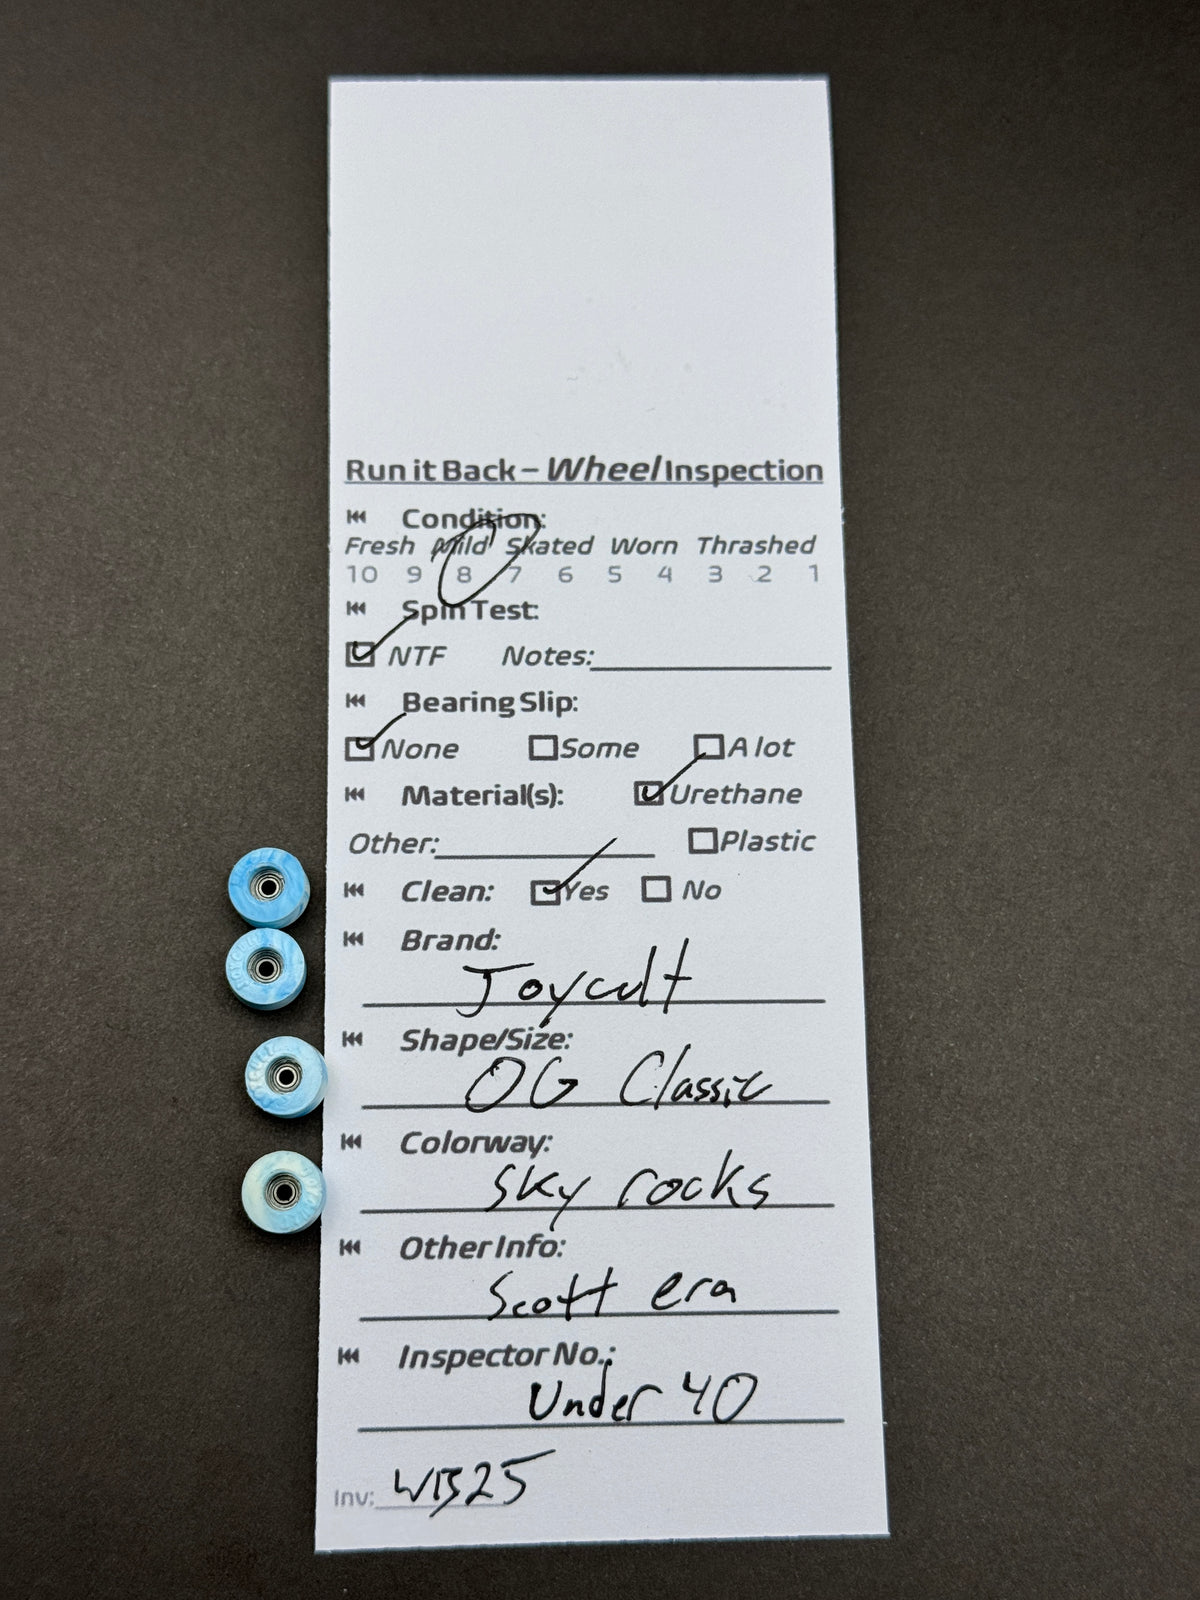 Run it Back – Wheel Inspection
Condition:
Fresh Mild Skated Worn Thrashed
10 9 8 7 6 5 4 3 2 1
Spin Test:
NTF Notes:
Bearing Slip:
None Some A lot
Material(s): Urethane
Other: Plastic
Clean: Yes No
Brand:
Joycult
Shape/Size:
OG Classic
Colorway:
Sky rocks
Other Info:
Scott era
Inspector No.:
Under 40
Inv: WB25